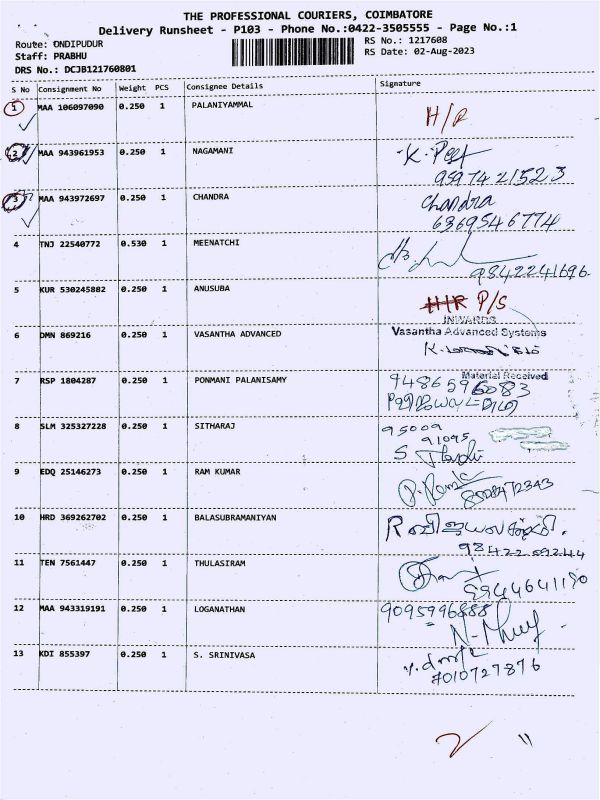 THE PROFESSIONAL COURIERS, COIMBATORE
Delivery Runsheet - P103 - Phone No.:0422-3505555 - Page No.:1
Route: ONDIPUDUR
RS No.: 1217608
Staff: PRABHU
RS Date: 02-Aug-2023
DRS No.: DCJB121760801
S No Consignment No Weight PCS Consignee Details Signature
1 MAA 106097090 0.250 1 PALANIYAMMAL
H/R
2 MAA 943961953 0.250 1 NAGAMANI
3 MAA 943972697 0.250 1 CHANDRA Chandra
6369546774
4 TNJ 22540772 0.530 1 MEENATCHI
9842241696.
5 KUR 530245882 0.250 1 ANUSUBA H/R P/S
INWARDS
6 DMN 869216 0.250 1 VASANTHA ADVANCED Vasantha Advanced Systems
Material Received
7 RSP 1804287 0.250 1 PONMANI PALANISAMY 9486596083
8 SLM 325327228 0.250 1 SITHARAJ 95009
91095
9 EDQ 25146273 0.250 1 RAM KUMAR
8508472343
10 HRD 369262702 0.250 1 BALASUBRAMANIYAN
11 TEN 7561447 0.250 1 THULASIRAM
9944641190
12 MAA 943319191 0.250 1 LOGANATHAN 9095996888
13 KDI 855397 0.250 1 S. SRINIVASA
7010727876